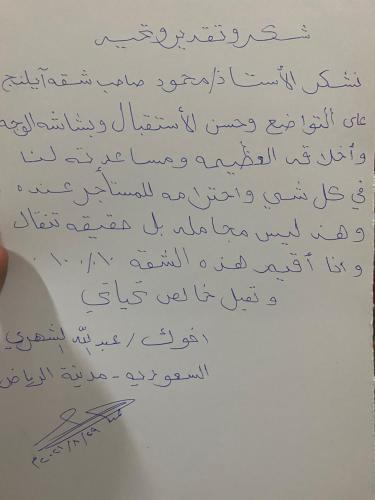 شكر وتقدير وتحيه
نشكر الأستاذ/محمود صاحب شقه آيلنج
على التواضع وحسن الأستقبال وبشاشه الوجه
وأخلاقه العظيمه ومساعدته لنا
في كل شي واحترامه للمستأجر عنده
وهذ ليس مجامله بل حقيقه تنقال
وانا أقيم هذه الشقة ١٠/١٠٠
وتقبل خالص تحياتي
اخوك/عبدالله الشهري
السعوديه - مدينة الرياض